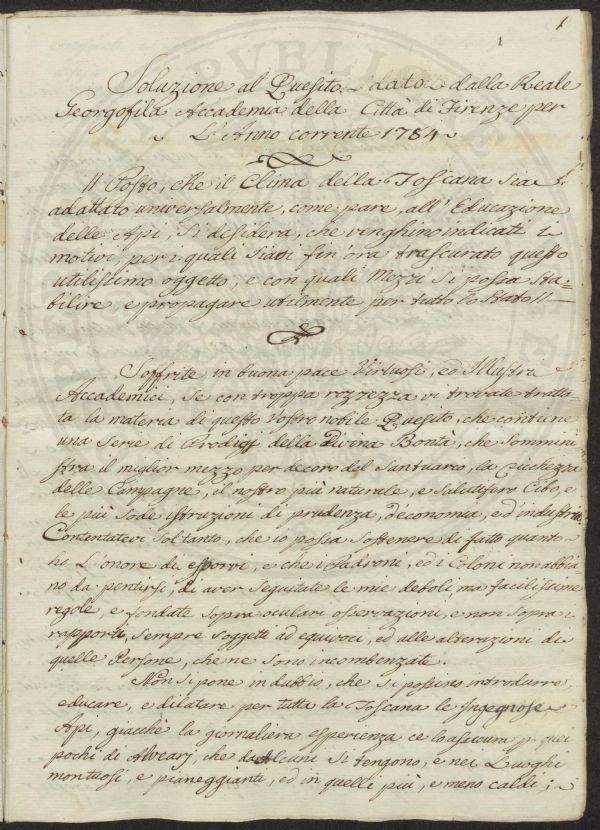 1
1
Soluzione al Quesito dato dalla Reale
Georgofila Accademia della Città di Firenze per
L'Anno corrente 1784
Posto, che il Clima della Toscana sia
adattato universalmente, come pare, all'Educazione
delle Api, si desidera, che venghino indicati i
motivi, per i quali siasi fin'ora trascurato questo
utilissimo oggetto, e con quali Mezzi si possa sta=
bilire, e propagare utilmente per tutto lo Stato
Soffrite in buona pace Virtuosi, ed Illustri
Accademici, se con troppa rozzezza vi trovate tratta=
ta la materia di questo vostro nobile Quesito, che contiene
una serie di Prodigj della Divina Bontà, che sommini
stra il miglior mezzo per decoro del Santuario, la Ricchezza
delle Campagne, il nostro più naturale, e salutifero Cibo, e
le più sode istruzioni di prudenza, d'economia, ed industria.
Contentatevi soltanto, che io possa sostenere di fatto quanto
hò l'onore di esporvi, e che i Padroni, ed i Coloni non abbia
no da pentirsi, di aver seguitate le mie deboli ma facilissime
regole, e fondate sopra oculari osservazioni, e non sopra i
rapporti, sempre soggetti ad equivoci, ed alle alterazioni di
quelle Persone, che ne sono incombenzate.
Non si pone in dubbio, che si possino introdurre,
educare, e dilatare per tutta la Toscana le Ingegnose
Api, giacchè la giornaliera esperienza ce lo assicura p. quei
pochi di Alvearj, che da Alcuni si tengono, e nei Luoghi
montuosi, e pianeggianti, ed in quelli più, e meno caldi;